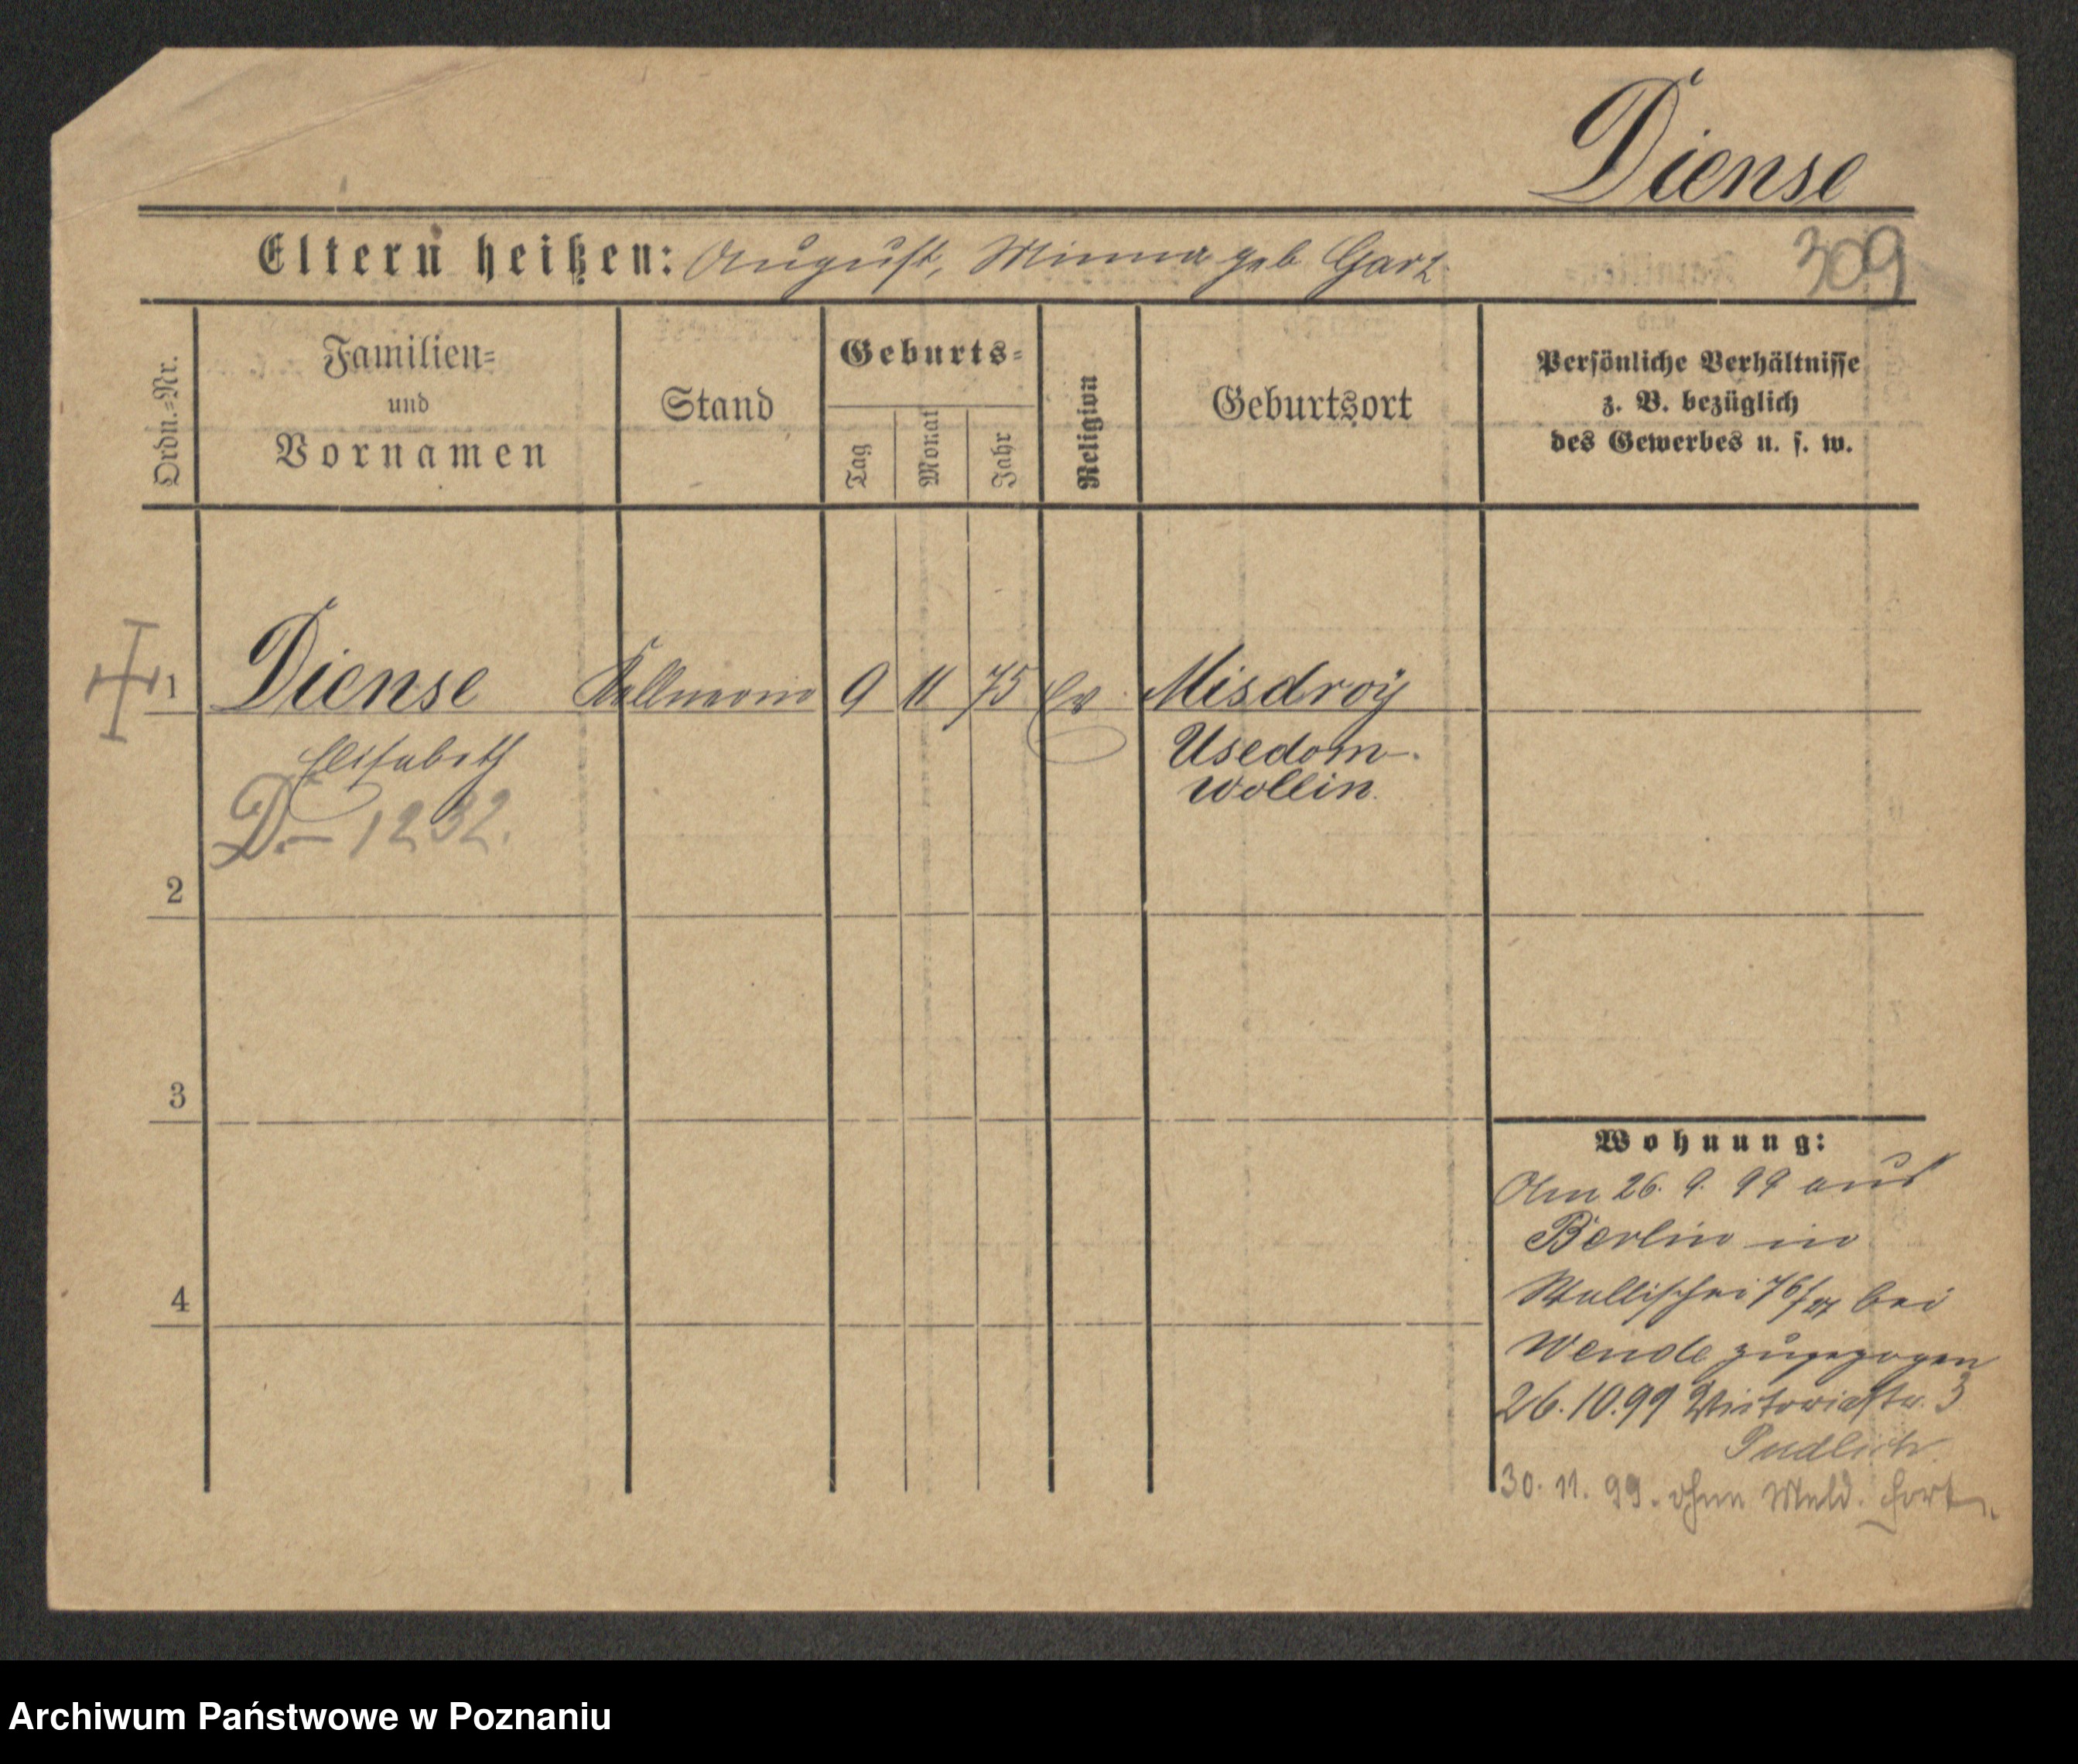 Diense
Eltern heißen: August, Minna geb Gartz
309
Ordn.=Nr.
Familien=
und
Vornamen
Stand
Geburts=
Tag
Monat
Jahr
Religion
Geburtsort
Persönliche Verhältnisse
z. B. bezüglich
des Gewerbes u. s. w.
1 Diense Kellnerin 9 11 75 Ev. Misdroÿ
Elisabeth
Usedom-
Wollin.
D.– 1232.
2
3
4
Wohnung:
Am 26. 9. 99 aus
Berlin in
Wallischei 76/77 bei
Wende zugezogen
26.10.99 Victoriastr. 3
30. 11. 99. ohne Meld. fort.
Archiwum Państwowe w Poznaniu